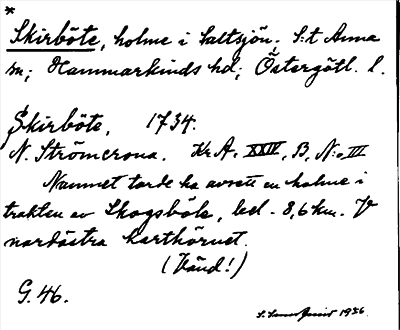 *
Skirböte, holme i Saltsjön, S:t Anna
sn; Hammarkinds hd; Östergötl. l.
Skirböte, 1734.
N. Strömcrona. Kr.A. XXIV, B, N:o III
Namnet torde ha avsett en holme i
trakten av Skogsböte, bel. 8,6 km. V
nordöstra karthörnet.
(Vänd!)
G. 46.
1936.